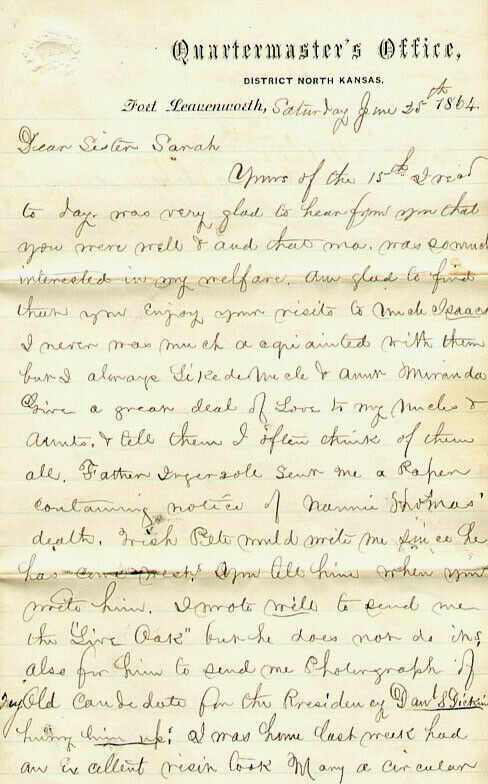 Quartermaster's Office,
DISTRICT NORTH KANSAS,
Fort Leavenworth, Saturday June 25th 1864.
Dear Sister Sarah
Yours of the 15th I recd
to day. was very glad to hear from you that
you were well & and that ma. was so much
interested in my welfare. Am glad to find
that you Enjoy your visits to Uncle Isaacs
I never was much acquainted with them
but I always Liked Uncle & Aunt Miranda
Give a great deal of Love to my Uncles &
Aunts. & tell them I often think of them
all. Father Ingersole Sent me a Paper
containing notice of Nannie Thomas'
death. Wish Pete would write me since he
has West. You tell him when you
write him. I wrote Will to send me
the "Live Oak" but he does not do it.
also for him to send me Photograph of
my Old Candidate for the Presidency Danl S Dickin
hurry him up. I was home last week had
an Excellent visit took Mary a circular